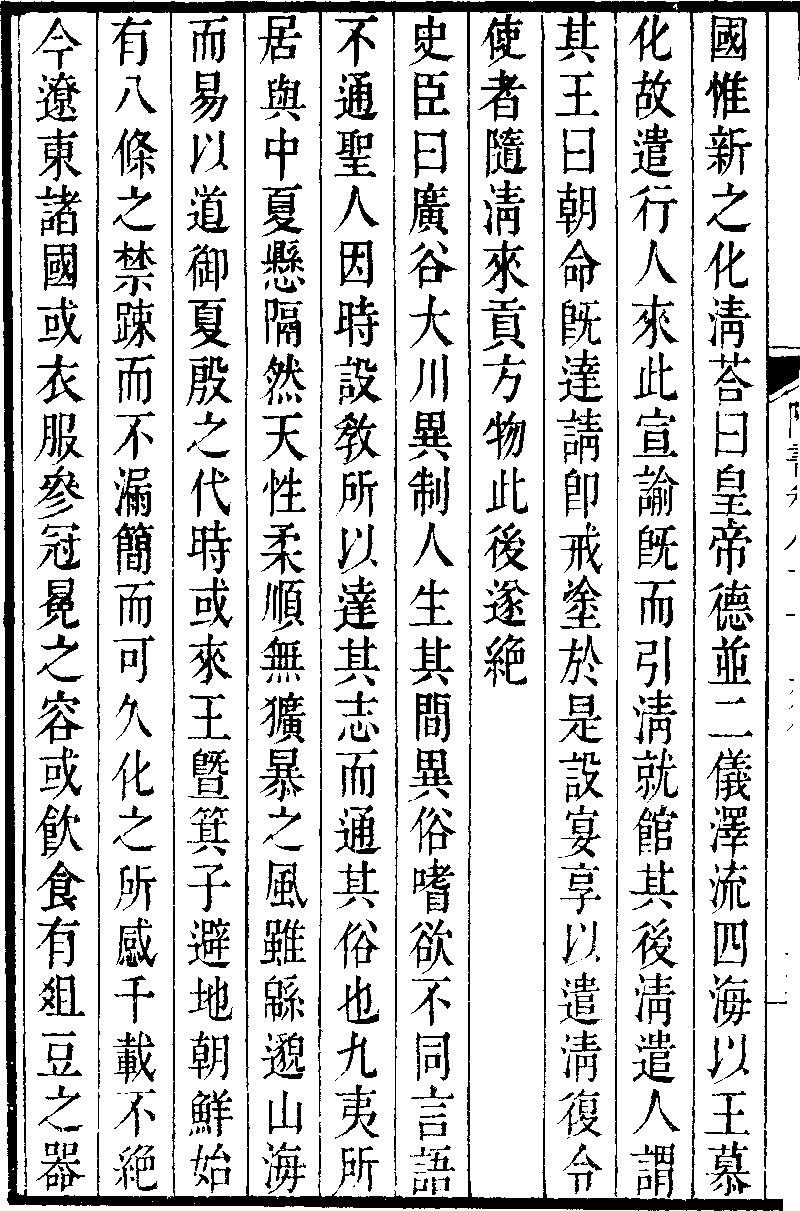 國惟新之化淸荅曰皇帝德並二儀澤流四海以王慕
化故遣行人來此宣諭旣而引淸就館其後淸遣人謂
其王曰朝命旣達請卽戒塗於是設宴享以遣淸復令
使者隨淸來貢方物此後遂絶
史臣曰廣谷大川異制人生其間異俗嗜欲不同言語
不通聖人因時設敎所以達其志而通其俗也九夷所
居與中夏懸隔然天性柔順無獷暴之風雖緜邈山海
而易以道御夏殷之代時或來王曁箕子避地朝鮮始
有八條之禁踈而不漏簡而可久化之所感千載不絶
今遼東諸國或衣服參冠冕之容或飮食有爼豆之器